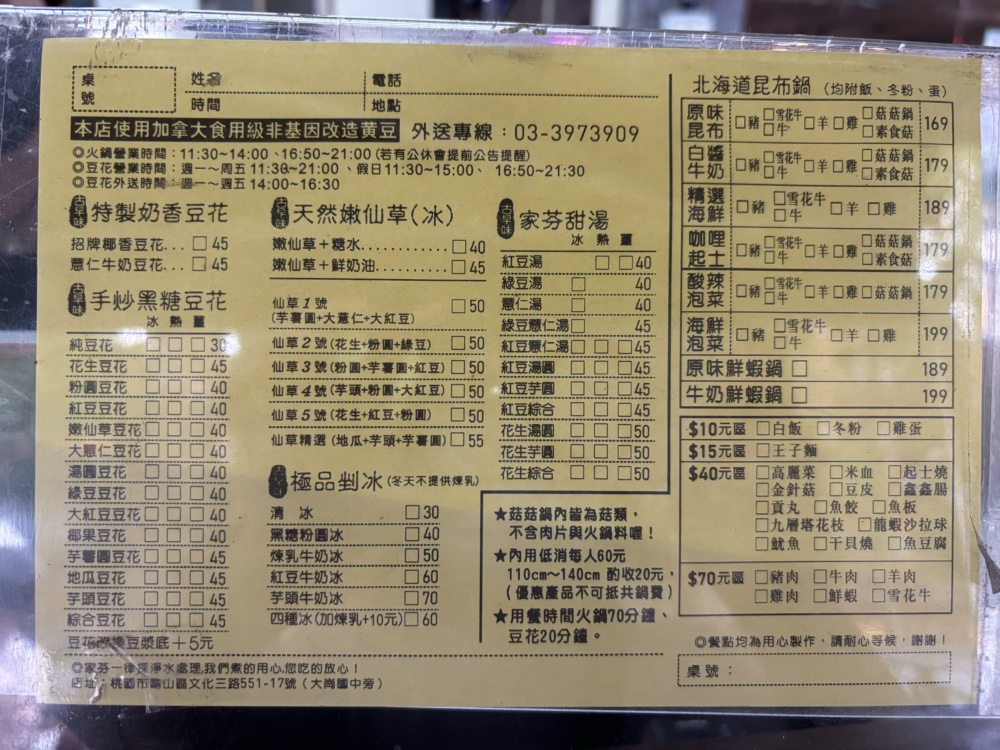 桌號
姓名
電話
時間
地點
本店使用加拿大食用級非基因改造黃豆 外送專線：03-3973909
◎火鍋營業時間：11:30~14:00、16:50~21:00 (若有公休會提前公告提醒)
◎豆花營業時間：週一~周五 11:30~21:00 、假日11:30~15:00、 16:50~21:30
◎豆花外送時間：週一~週五 14:00~16:30
古早味 特製奶香豆花
招牌椰香豆花... □ 45
薏仁牛奶豆花... □ 45
古早味 手炒黑糖豆花
冰 熱 薑
純豆花 □ □ □ 30
花生豆花 □ □ □ 45
粉圓豆花 □ □ □ 40
紅豆豆花 □ □ □ 40
嫩仙草豆花 □ □ □ 40
大薏仁豆花 □ □ □ 40
湯圓豆花 □ □ □ 40
綠豆豆花 □ □ □ 40
大紅豆豆花 □ □ □ 40
椰果豆花 □ □ □ 40
芋薯圓豆花 □ □ □ 45
地瓜豆花 □ □ □ 45
芋頭豆花 □ □ □ 45
綜合豆花 □ □ □ 45
豆花改換豆漿底＋5元
古早味 天然嫩仙草(冰)
嫩仙草＋糖水.......... □ 40
嫩仙草＋鮮奶油.......... □ 45
仙草1號 □ 50
(芋薯圓+大薏仁+大紅豆)
仙草2號 (花生+粉圓+綠豆) □ 50
仙草3號 (粉圓+芋薯圓+紅豆) □ 50
仙草4號 (芋頭+粉圓+大紅豆) □ 50
仙草5號 (花生+紅豆+粉圓) □ 50
仙草精選 (地瓜+芋頭+芋薯圓) □ 55
古早味 極品剉冰 (冬天不提供煉乳)
清 冰 □ 30
黑糖粉圓冰 □ 40
煉乳牛奶冰 □ 50
紅豆牛奶冰 □ 60
芋頭牛奶冰 □ 70
四種冰(加煉乳+10元) □ 60
古早味 家芬甜湯
冰 熱 薑
紅豆湯 □ □ 40
綠豆湯 □ 40
薏仁湯 □ 40
綠豆薏仁湯 □ 45
紅豆薏仁湯 □ □ □ 45
紅豆湯圓 □ □ □ 45
紅豆芋圓 □ □ □ 45
紅豆綜合 □ □ □ 45
花生湯圓 □ □ □ 50
花生芋圓 □ □ □ 50
花生綜合 □ □ □ 50
★菇菇鍋內皆為菇類，
不含肉片與火鍋料喔！
★內用低消每人60元
110cm~140cm 酌收20元，
(優惠產品不可抵共鍋費)
★用餐時間火鍋70分鐘、
豆花20分鐘。
北海道昆布鍋 (均附飯、冬粉、蛋)
原味昆布 □豬 □雪花牛 □牛 □羊 □雞 □菇菇鍋 □素食菇 169
白醬牛奶 □豬 □雪花牛 □牛 □羊 □雞 □菇菇鍋 □素食菇 179
精選海鮮 □豬 □雪花牛 □牛 □羊 □雞 189
咖哩起士 □豬 □雪花牛 □牛 □羊 □雞 □菇菇鍋 □素食菇 179
酸辣泡菜 □豬 □雪花牛 □牛 □羊 □雞 □菇菇鍋 179
海鮮泡菜 □豬 □雪花牛 □牛 □羊 □雞 199
原味鮮蝦鍋 □ 189
牛奶鮮蝦鍋 □ 199
$10元區 □白飯 □冬粉 □雞蛋
$15元區 □王子麵
$40元區 □高麗菜 □米血 □起士燒
□金針菇 □豆皮 □鑫鑫腸
□貢丸 □魚餃 □魚板
□九層塔花枝 □龍蝦沙拉球
□魷魚 □干貝燒 □魚豆腐
$70元區 □豬肉 □牛肉 □羊肉
□雞肉 □鮮蝦 □雪花牛
◎餐點均為用心製作，請耐心等候，謝謝！
桌號：
◎家芬一律採淨水處理,我們煮的用心,您吃的放心！
店址：桃園市龜山區文化三路551-17號（大崗國中旁）